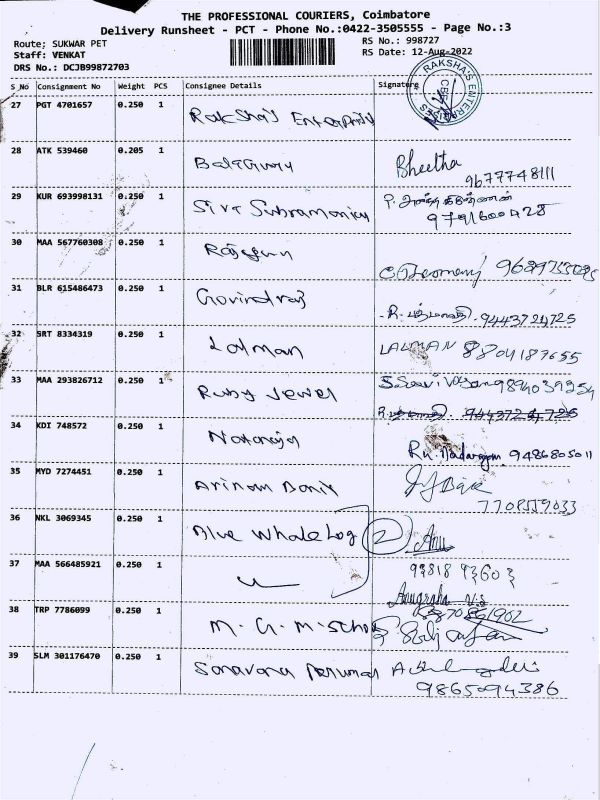 THE PROFESSIONAL COURIERS, Coimbatore
Delivery Runsheet - PCT - Phone No.:0422-3505555 - Page No.:3
Route; SUKWAR PET
RS No.: 998727
Staff: VENKAT
RS Date: 12-Aug-2022
DRS No.: DCJB99872703
S_No Consignment No Weight PCS Consignee Details Signature
RAKSHA'S ENTERPRISES
CBE
27 PGT 4701657 0.250 1 Rakshas Enterprise
28 ATK 539460 0.205 1 Balaguru Bheetha
9677748111
29 KUR 693998131 0.250 1 Siva Subramaniam P.
9791600428
30 MAA 567760308 0.250 1
31 BLR 615486473 0.250 1 Govindraj R. 9443724725
32 SRT 8334319 0.250 1 Lalman LALMAN 8804187655
33 MAA 293826712 0.250 1 Ruby Jewel 9894039254
34 KDI 748572 0.250 1 Nataraja 9486805011
35 MYD 7274451 0.250 1 Arinam Banik
7708559033
36 NKL 3069345 0.250 1 Blue Whale Log 2 Anu
37 MAA 566485921 0.250 1
Anugraha V.S
38 TRP 7786099 0.250 1 M. G. M. School
39 SLM 301176470 0.250 1 Saravana Perumal
9865094386